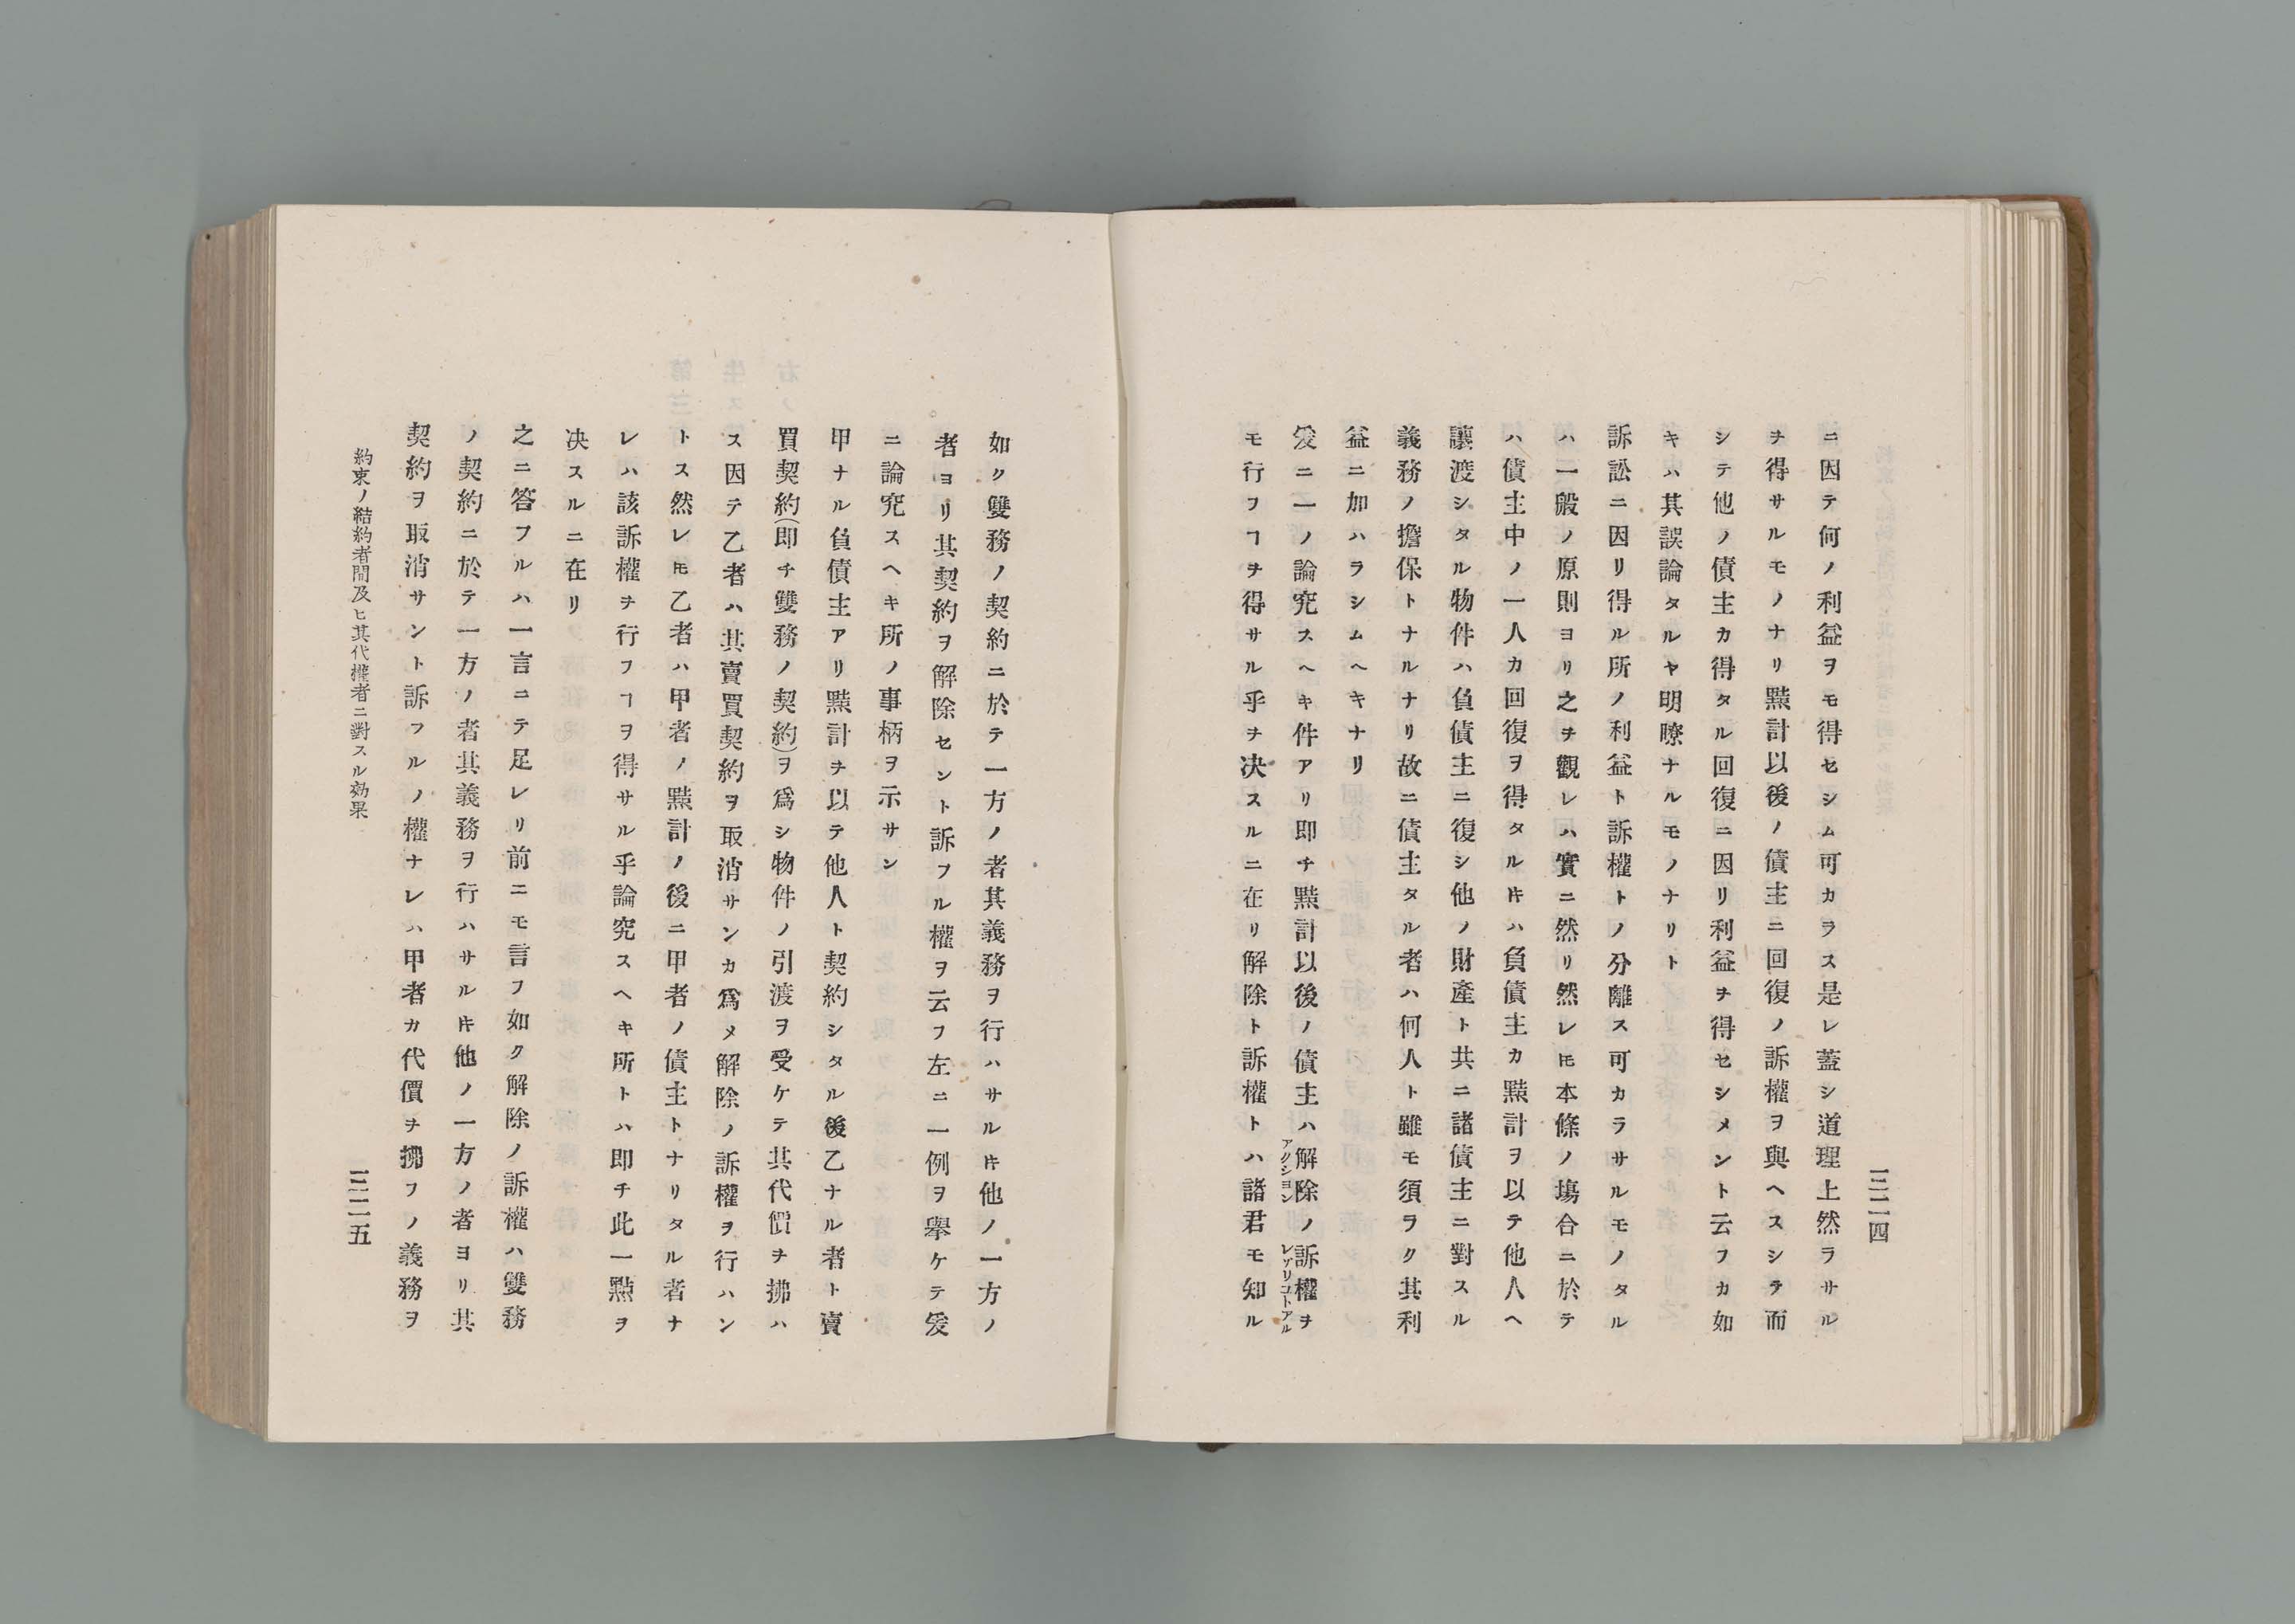 三二四
ニ因テ何ノ利益ヲモ得セシム可カラス是レ蓋シ道理上然ラサル
ヲ得サルモノナリ黠計以後ノ債主ニ回復ノ訴權ヲ與ヘスシテ而
シテ他ノ債主カ得タル回復ニ因リ利益ヲ得セシメント云フカ如
キハ其誤論タルヤ明瞭ナルモノナリト
訴訟ニ因リ得ル所ノ利益ト訴權トノ分離ス可カラサルモノタル
ハ一般ノ原則ヨリ之ヲ觀レハ實ニ然リ然レ𪜈本條ノ塲合ニ於テ
ハ債主中ノ一人カ回復ヲ得タル𪜈ハ負債主カ黠計ヲ以テ他人ヘ
讓渡シタル物件ハ負債主ニ復シ他ノ財產ト共ニ諸債主ニ對スル
義務ノ擔保トナルナリ故ニ債主タル者ハ何人ト雖モ須ラク其利
益ニ加ハラシムヘキナリ
爰ニ一ノ論究スヘキ件アリ即チ黠計以後ノ債主ハ解除ノ訴權ヲ
アクション レゾリユトアル
モ行フヿヲ得サル乎ヲ决スルニ在リ解除ト訴權トハ諸君モ知ル
如ク雙務ノ契約ニ於テ一方ノ者其義務ヲ行ハサル𪜈他ノ一方ノ
者ヨリ其契約ヲ解除セント訴フル權ヲ云フ左ニ一例ヲ擧ケテ爰
ニ論究スヘキ所ノ事柄ヲ示サン
甲ナル負債主アリ黠計ヲ以テ他人ト契約シタル後乙ナル者ト賣
買契約(即チ雙務ノ契約)ヲ爲シ物件ノ引渡ヲ受ケテ其代價ヲ拂ハ
ス因テ乙者ハ其賣買契約ヲ取消サンカ爲メ解除ノ訴權ヲ行ハン
トス然レ𪜈乙者ハ甲者ノ黠計ノ後ニ甲者ノ債主トナリタル者ナ
レハ該訴權ヲ行フヿヲ得サル乎論究スヘキ所トハ即チ此一點ヲ
决スルニ在リ
之ニ答フルハ一言ニテ足レリ前ニモ言フ如ク解除ノ訴權ハ雙務
ノ契約ニ於テ一方ノ者其義務ヲ行ハサル𪜈他ノ一方ノ者ヨリ其
契約ヲ取消サント訴フルノ權ナレハ甲者カ代價ヲ拂フノ義務ヲ
約束ノ結約者間及ヒ其代權者ニ對スル効果
三二五